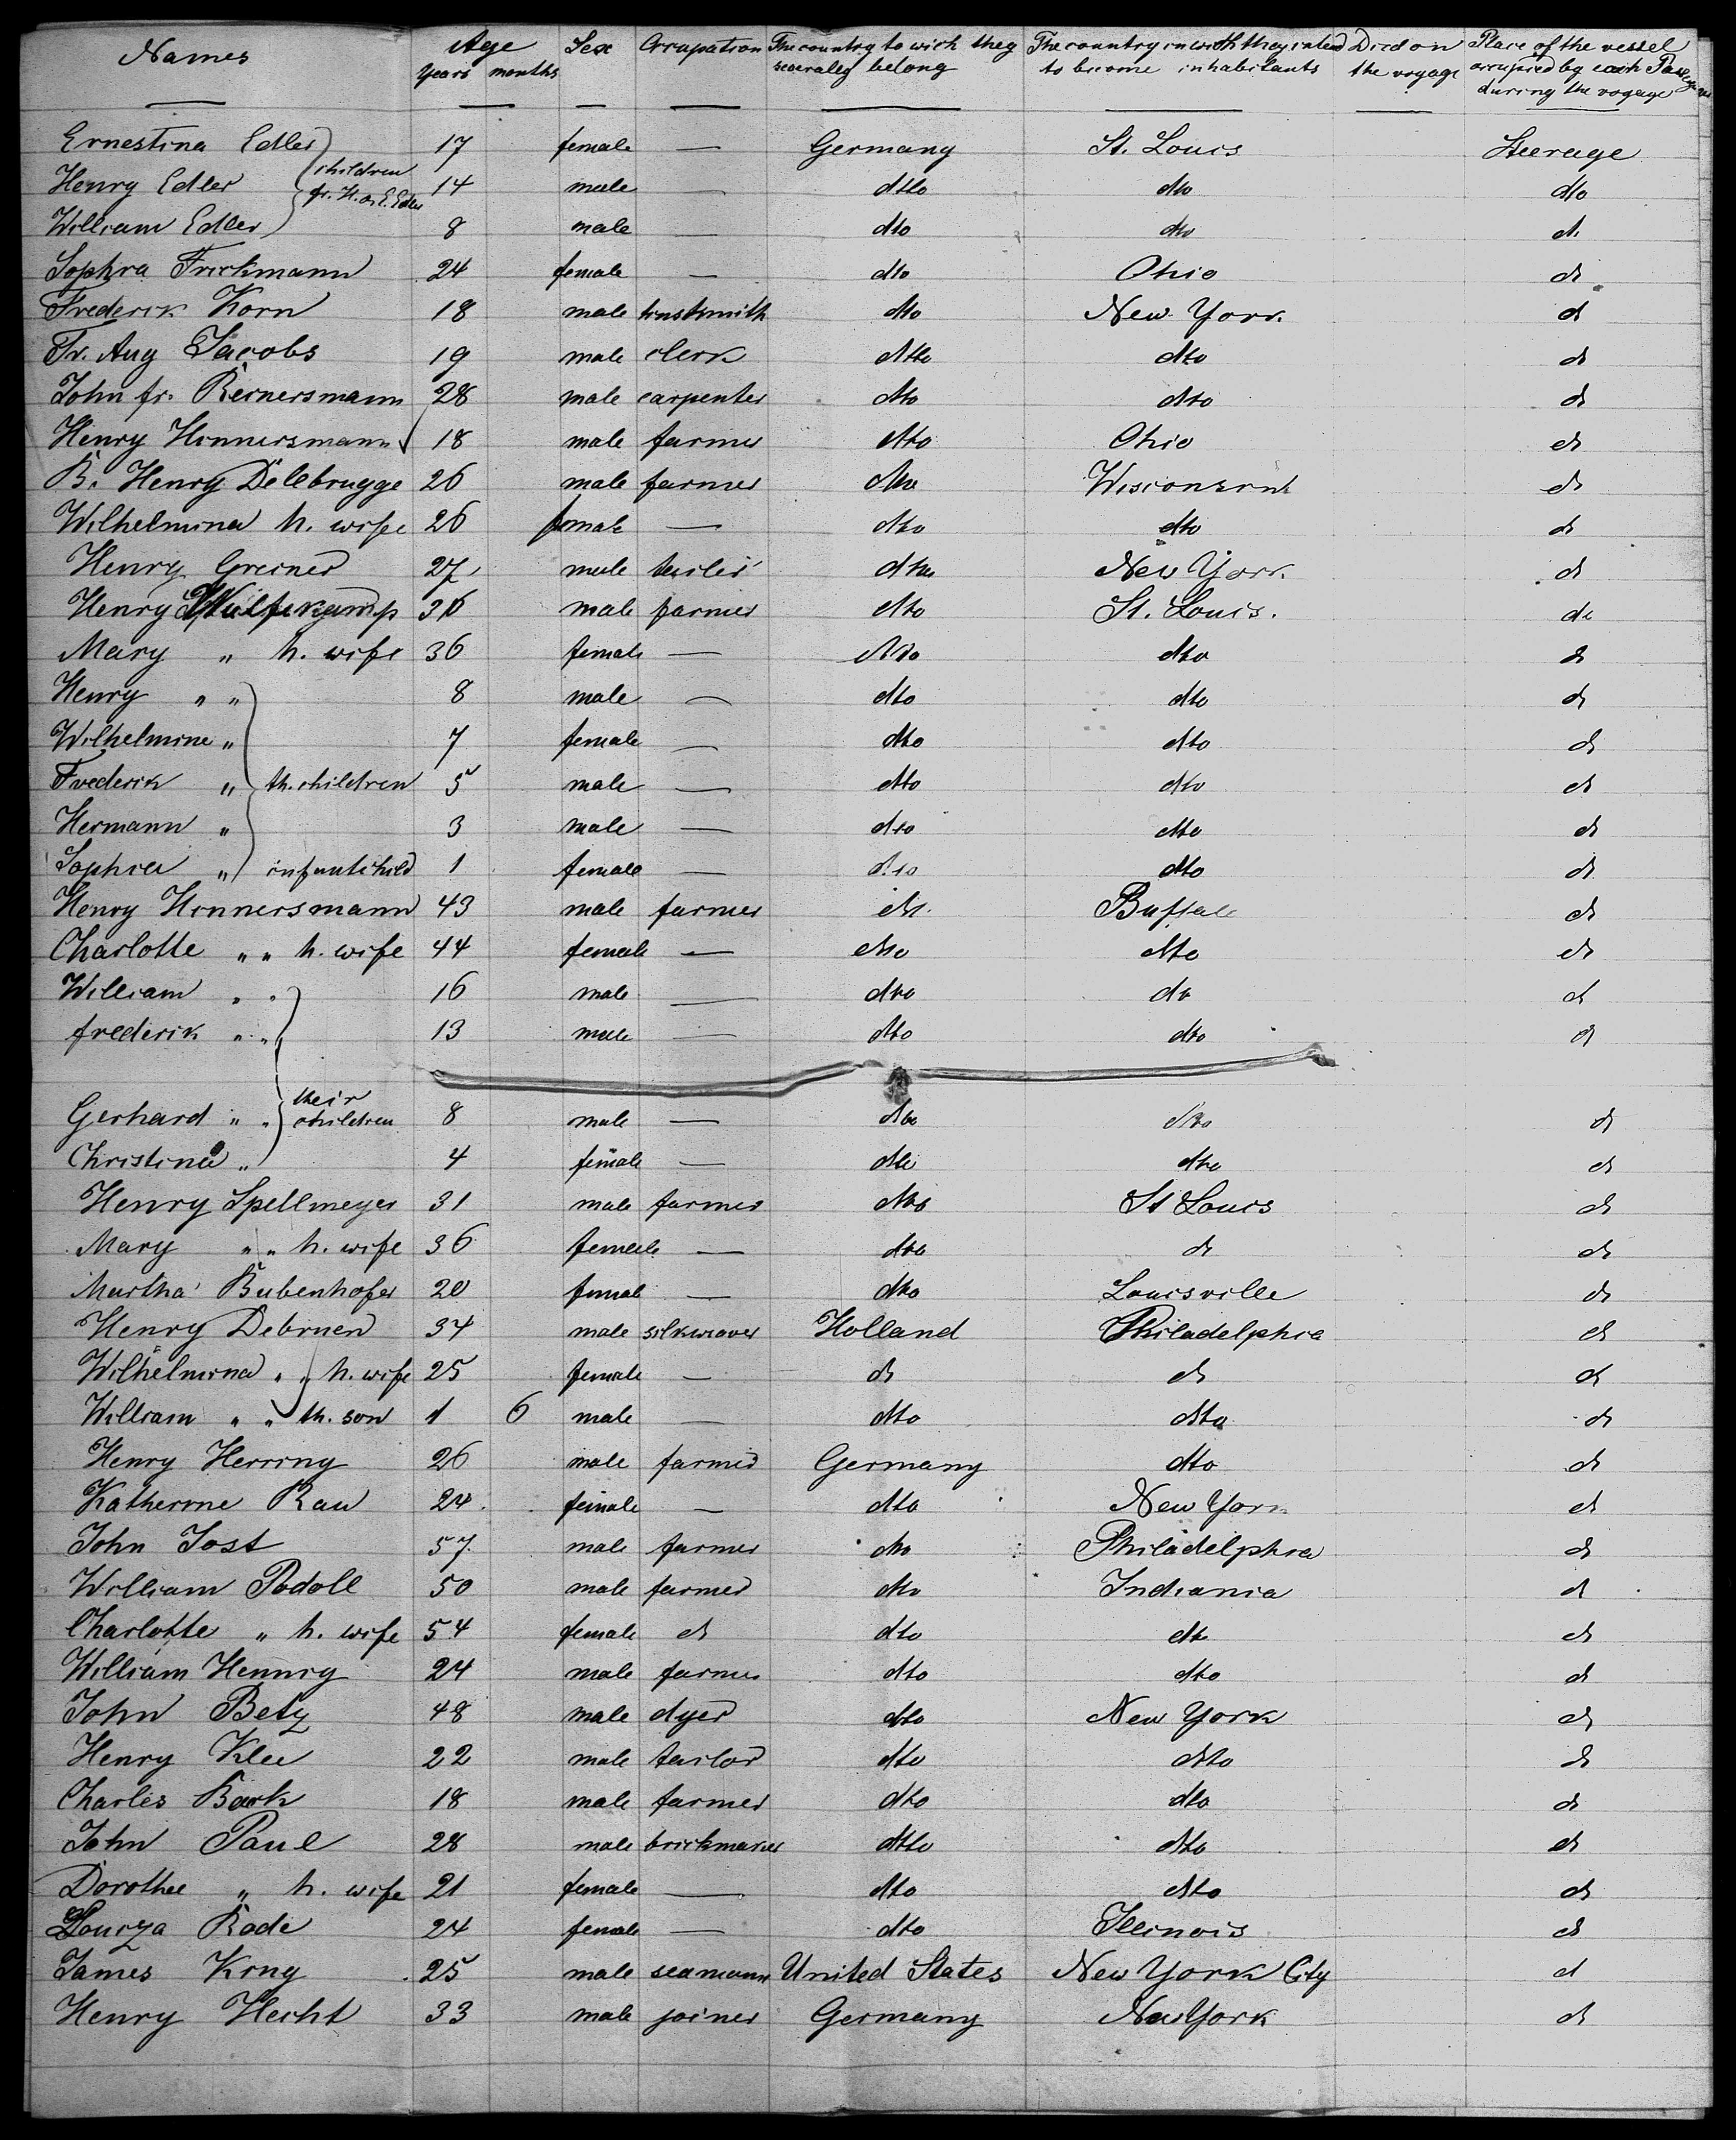 Names Age Sex Occupation The country to wich they The country in wich they intend Died on Place of the vessel
Years months severaly belong to become inhabitants the voyage occupied by each Passenger
during the voyage
Ernestina Edler 17 female — Germany St. Louis Steerage
children
Henry Edler fr. H. & E. Edler 14 male — dtto dto do
William Edler 8 male — dto dto d.
Sophia Frickmann 24 female — dto Ohio do
Frederik Korn 18 male dto New York do
Fr. Aug Jacobs 19 male clerk dtto dto do
John fr. Reinersmann 28 male carpenter dto dto do
Henry Hinnersmann 18 male farmer dto Ohio do
B. Henry Delebrugge 26 male farmer dto Wisconsin do
Wilhelmina h. wife 26 female — dto dto do
Henry Greiner 27 male dto New York do
Henry 36 male farmer dto St. Louis. do
Mary " h. wife 36 female — dto dto do
Henry " " 8 male — dto dto do
Wilhelmine " 7 female — dto dto do
Frederik " th. children 5 male — dto dto do
Hermann " 3 male — dto dto do
Sophia " infant child 1 female — dto dto do
Henry Hinnersmann 43 male farmer do. Buffalo do
Charlotte " " h. wife 44 female — dto dto do
William " " 16 male — dto do do
frederik " " 13 male — dto dto do
their
Gerhard " " children 8 male — dto dto do
Christina " 4 female — dto dto do
Henry Spellmeyer 31 male farmer dto St Louis do
Mary " " h. wife 36 female — dto do do
Martha Bubenhofer 20 female — dto Louisville do
Henry Debruen 34 male silkweaver Holland Philadelphia do
Wilhelmina " " h. wife 25 female — do do do
William " " th. son 1 6 male — dto dto do
Henry Herring 26 male farmer Germany dto do
Katherine Rau 24 female — dto New York do
John Jost 57 male farmer dto Philadelphia do
William Podoll 50 male farmer dto Indiania do
Charlotte " h. wife 54 female do dto dto do
William Hennig 24 male farmer dto dto do
John Betz 48 male dyer dto New York do
Henry Klee 22 male tailor dto dto do
Charles Bark 18 male farmer dto dto do
John Paul 28 male brickmaker dtto dto do
Dorothee " h. wife 21 female — dto dto do
Louiza Rode 24 female — dto Illinois do
James King 25 male seamann United States New York City do
Henry Hecht 33 male joiner Germany New York do